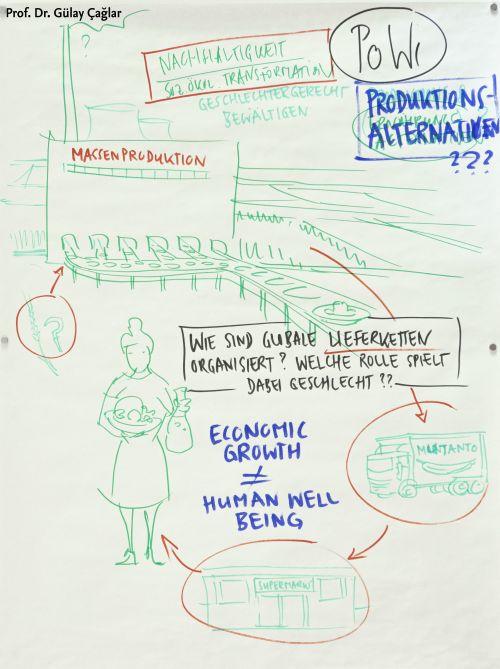 Prof. Dr. Gülay Çağlar
?
NACHHALTIGKEIT
SOZ.ÖKOL. TRANSFORMATION
GESCHLECHTERGERECHT
BEWÄLTIGEN
PoWi
PRODUKTIONS-
ALTERNATIVEN
???
MASSENPRODUKTION
?
WIE SIND GLOBALE LIEFERKETTEN
ORGANISIERT? WELCHE ROLLE SPIELT
DABEI GESCHLECHT??
ECONOMIC
GROWTH
≠
HUMAN WELL
BEING
MUNTANTO
SUPERMARKT